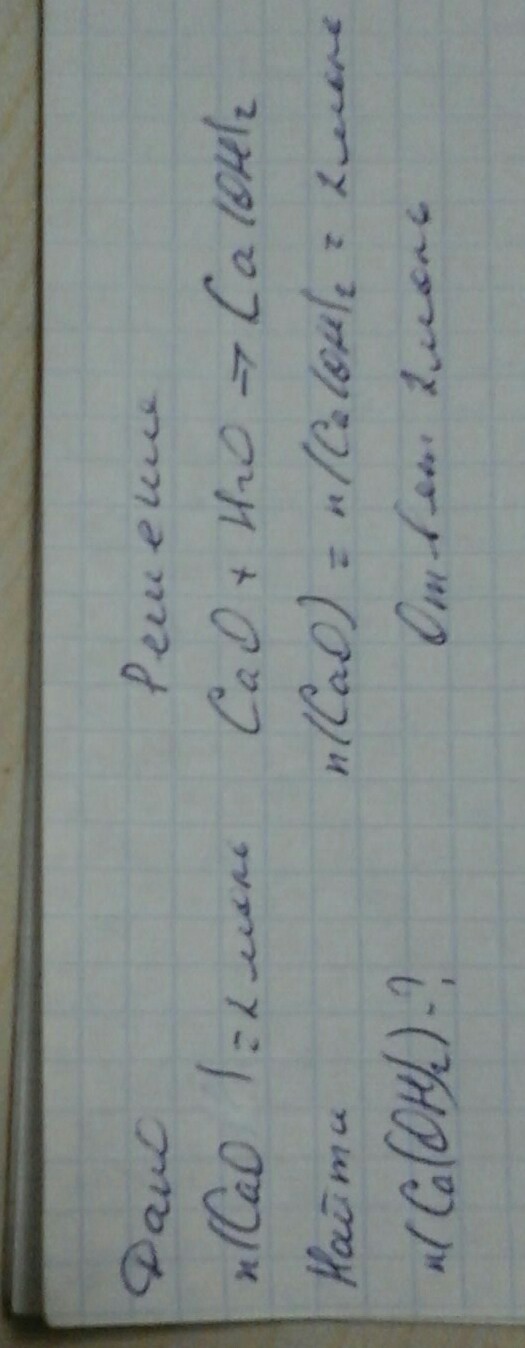 Дано
n(CaO) = 2 моль
Найти
n(Ca(OH)2) - ?
Решение
CaO + H2O => Ca(OH)2
n(CaO) = n(Ca(OH)2 = 2 моль
Ответ 2 моль